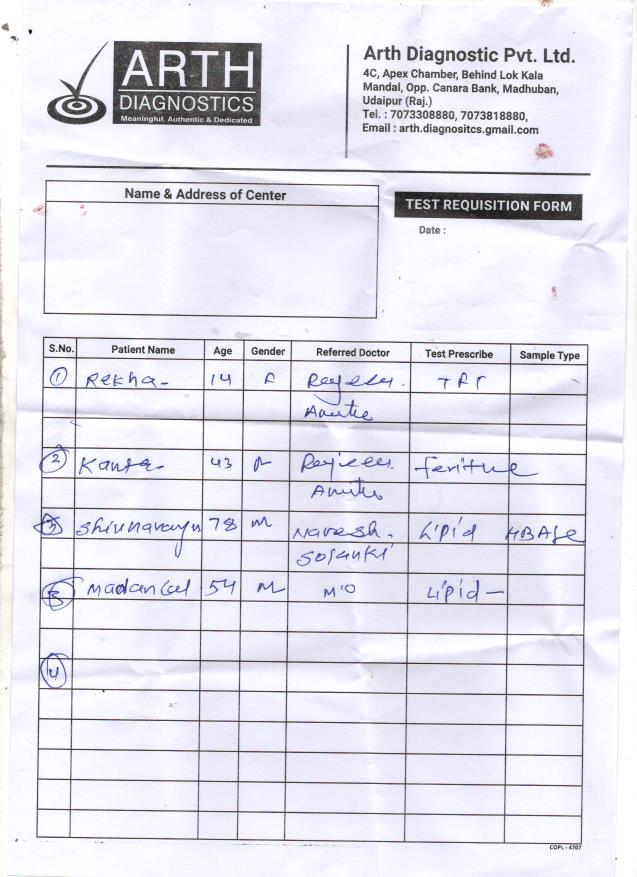 ARTH
DIAGNOSTICS
Meaningful, Authentic & Dedicated
Arth Diagnostic Pvt. Ltd.
4C, Apex Chamber, Behind Lok Kala
Mandal, Opp. Canara Bank, Madhuban,
Udaipur (Raj.)
Tel. : 7073308880, 7073818880,
Email : arth.diagnositcs.gmail.com
Name & Address of Center
TEST REQUISITION FORM
Date :
S.No. Patient Name Age Gender Referred Doctor Test Prescribe Sample Type
1 Rekha- 14 F
2 Kanta- 43
78 M Naresh. Lipid
Solanki
Madanlal 54 M M'O Lipid -
4
COPL - 4707